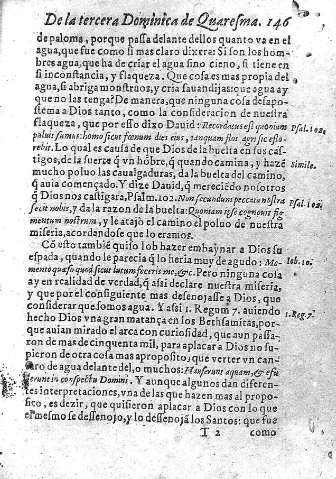 De la tercera Dominica de Quaresma. 146
de paloma, porque passa delante dellos quanto va en el
agua, que fue como si mas claro dixera: Si son los hom-
bres agua, que ha de criar el agua sino cieno, si tiene en
si inconstancia, y flaqueza. Que cosa es mas propia del
agua, si abriga monstruos, y cria sauandijas: que agua ay
que no las tenga? De manera, que ninguna cosa desapo-
stema a Dios tanto, como la consideracion de nuestra
flaqueza, que por esso dixo Dauid: Recordatus est quoniam
puluis sumus: homo sicut fœnum dies eius, tanquam flos agri sic eflo-
rebit. Lo qual es causa de que Dios de la buelta en sus cas-
tigos, de la suerte q̃ vn hõbre, q̃ quando camina, y hazé
mucho poluo las caualgaduras, da la buelta del camino,
q̃ auia començado. Y dize Dauid, q̃ mereciẽdo nosotros
q̃ Dios nos castigara, Psalm. 102. Non secundum peccata nostra
fecit nobis, y da la razon de la buelta: Quoniam ipse cognouit fig
mentum nostrum, y le atajò el camino el poluo de nuestra
miseria, acordandose que lo eramos.
Cõ esto tambiẽ quiso Iob hazer embaynar a Dios su
espada, quando le parecia q̃ lo heria muy de agudo: Me-
mento quæso quod sicut lutum feceris me, &c. Pero ninguna cosa
ay en realidad de verdad, q̃ assi declare nuestra miseria,
y que por el consiguiente mas desenojasse a Dios, que
considerar que somos agua. Y assi 1. Regum 7. auiendo
hecho Dios vna gran matança en los Bethsamitas, por-
que auian mirado el arca con curiosidad, que aun passa-
ron de mas de cincuenta mil, para aplacar a Dios no su-
pieron de otra cosa mas aproposito, que verter vn canta-
ro de agua delante del, o muchos: Hauserunt aquam, & effu
derunt in conspectu Domini. Y aunque algunos dan diferen-
tes interpretaciones, vna de las que hazen mas al propo-
sito, es dezir, que quisieron aplacar a Dios con lo que
el mesmo se desenojò, y lo desenojã los Santos: que fue
T 2 como
Psal. 102.
Simile.
Psal. 102.
Iob. 10.
1. Reg. 7.